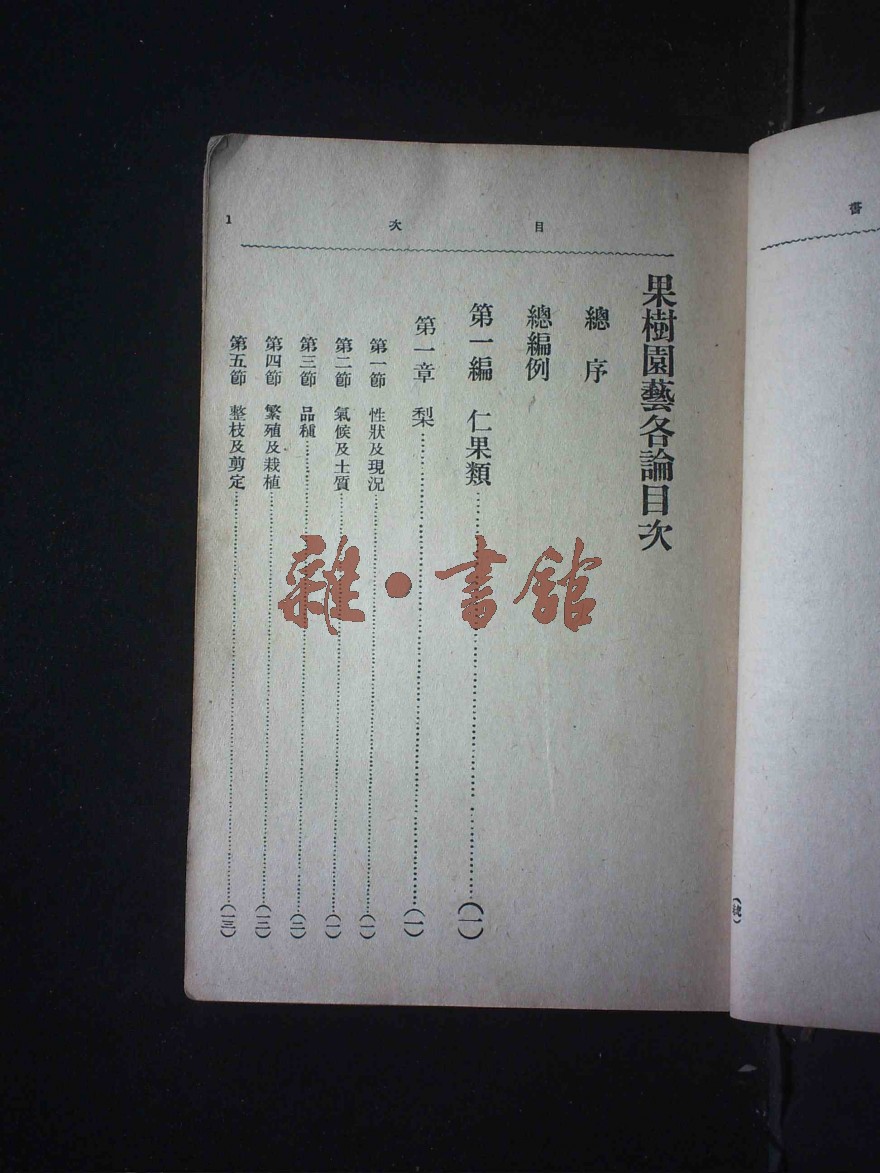 目次
1
果樹園藝各論目次
總序
總編例
第一編 仁果類……(一)
第一章 梨……(一)
第一節 性狀及現況……(一)
第二節 氣候及土質……(一)
第三節 品種……(二)
第四節 繁殖及栽植……(三)
第五節 整枝及剪定……(一三)
雜·書館
書